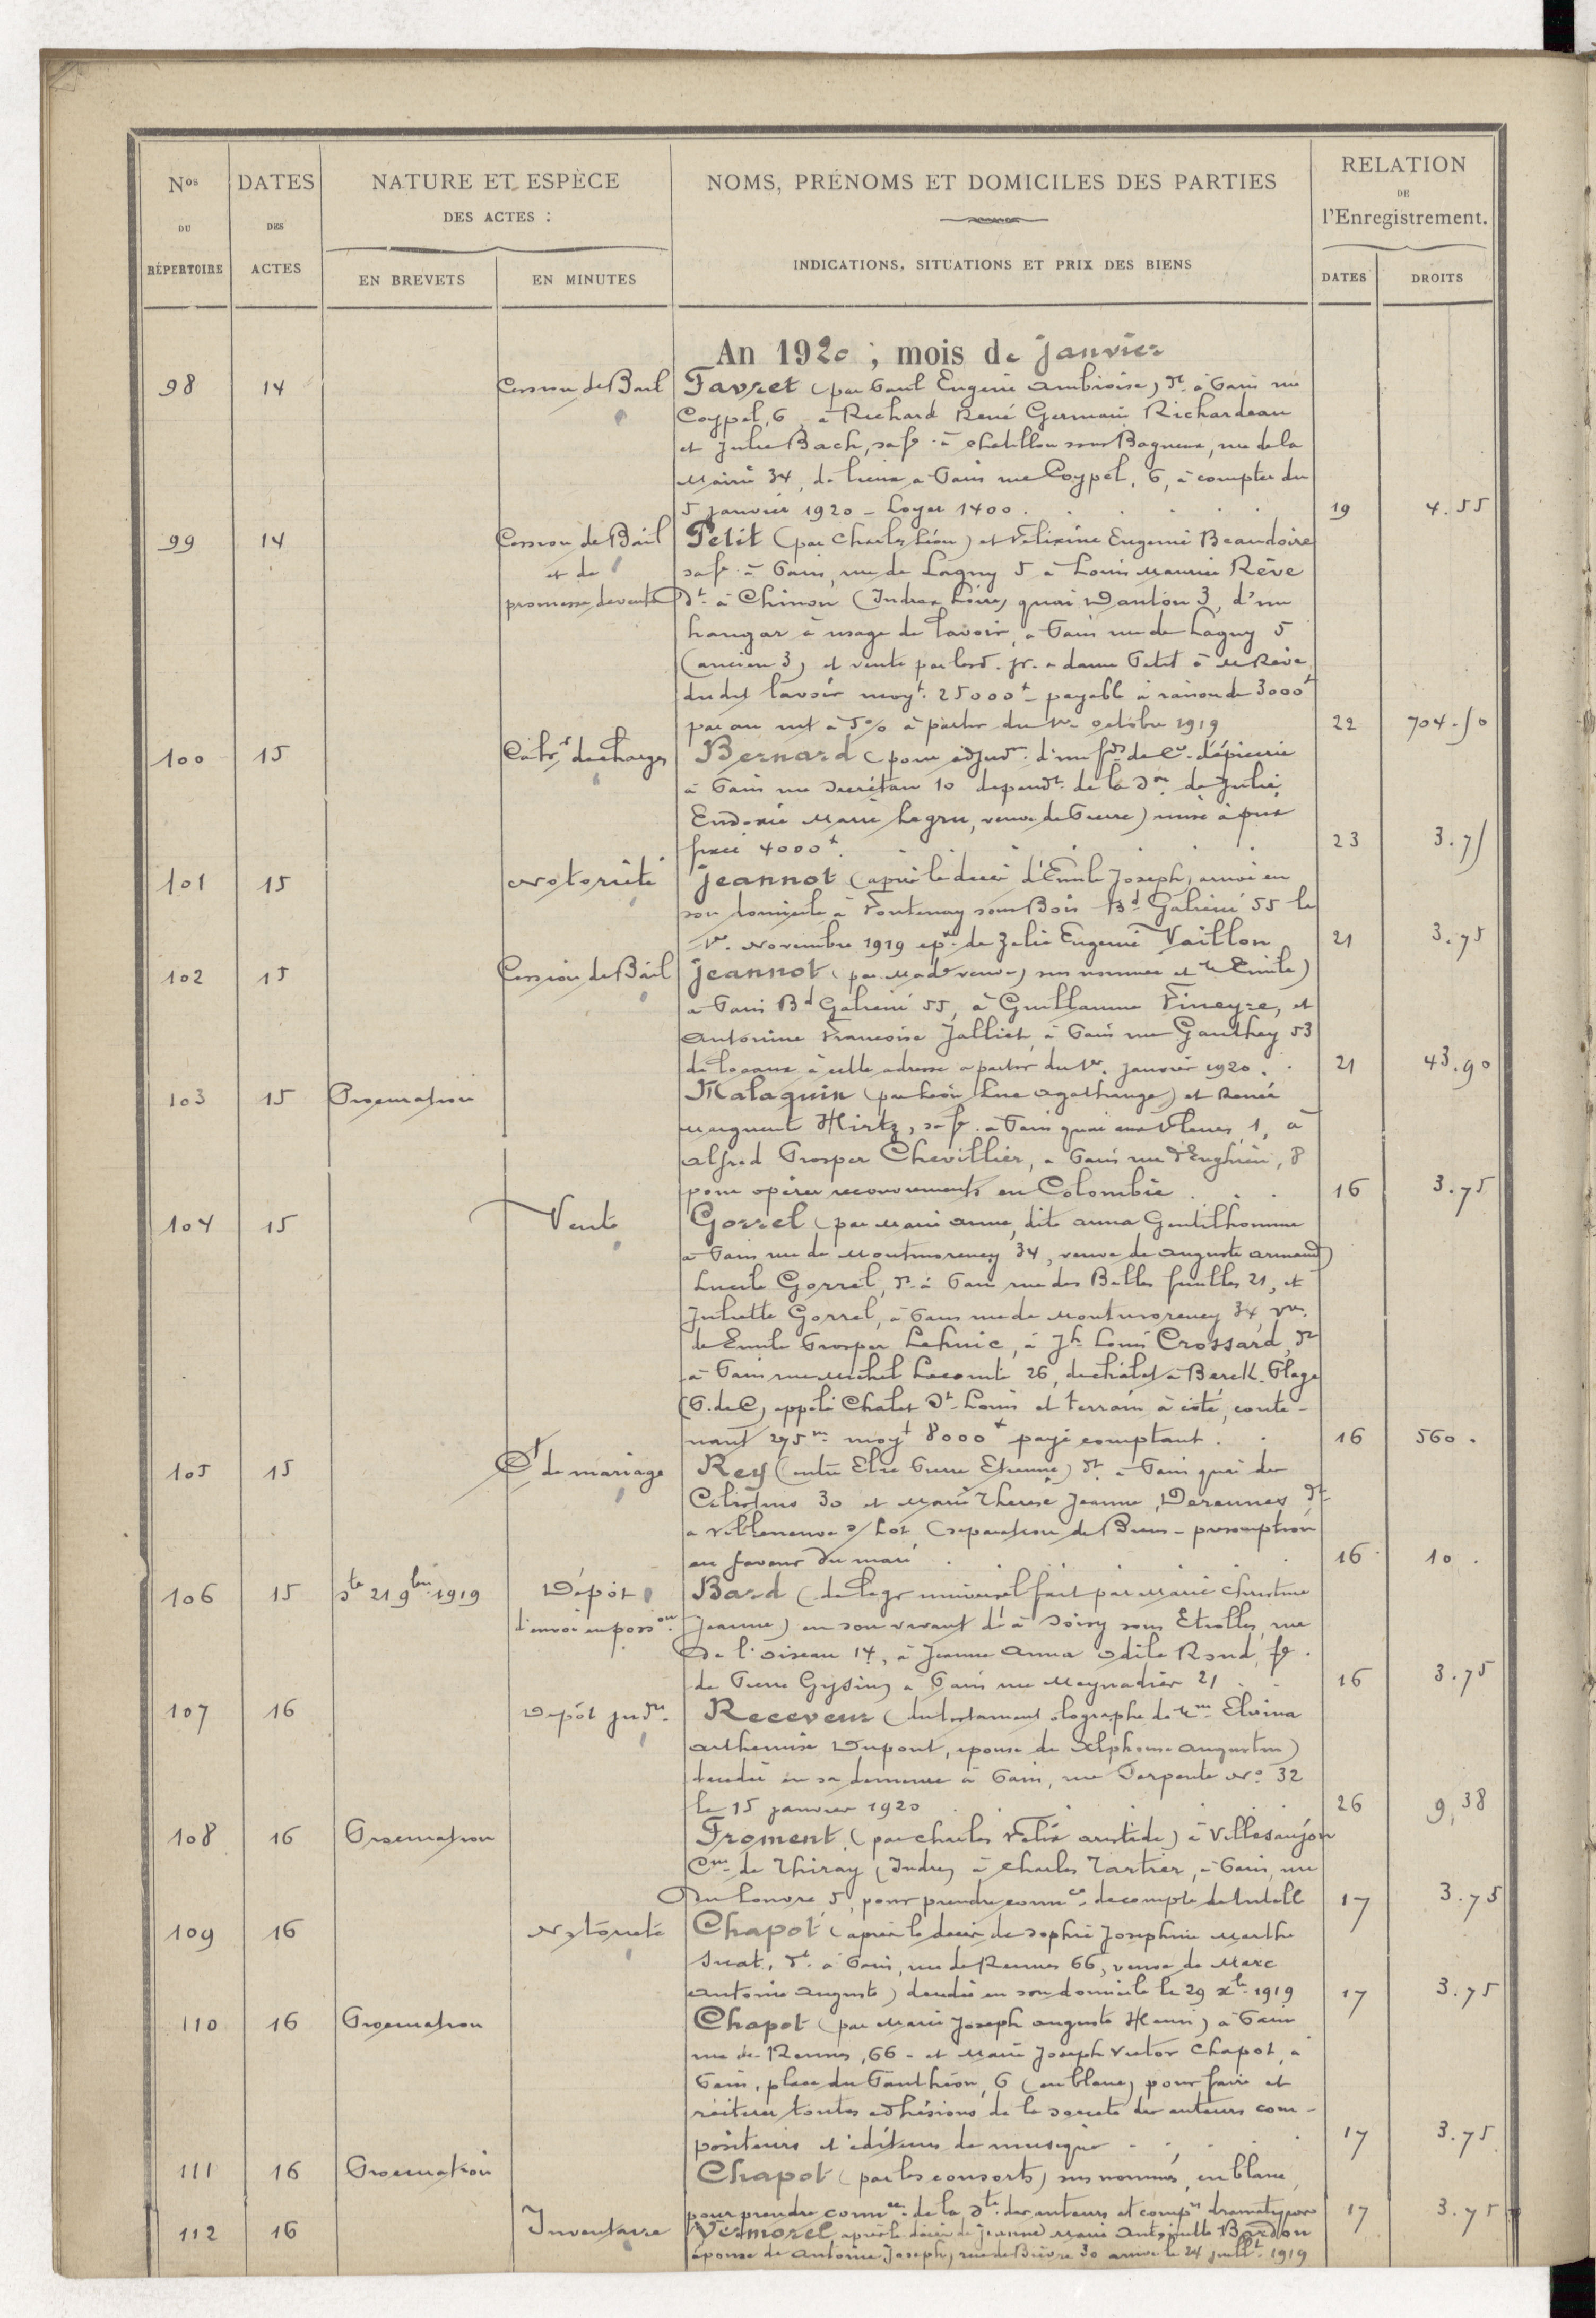 Nos
DU
RÉPERTOIRE
DATES
DES
ACTES
NATURE ET ESPÈCE
DES ACTES :
EN BREVETS
EN MINUTES
NOMS, PRÉNOMS ET DOMICILES DES PARTIES
INDICATIONS, SITUATIONS ET PRIX DES BIENS
RELATION
DE
l'Enregistrement.
DATES
DROITS
An 1920 ; mois de janvier
98 14 Cession de Bail Favret (par Paul Eugène Ambroise) dt à Paris rue
Coypel, 6, à Richard René Germain Richardeau
et Julie Bach, sa fe à Chatillon sous Bagneux, rue de la
Mairie 34, de lieux a Paris rue Coypel, 6, à compter du
5 janvier 1920 - Loyer 1400 . 19 4.55
99 14 Cession de Bail Petit (par Charles Léon) et Felixine Eugenie Beaudoire
et de sa fe à Paris, rue de Lagny 5 à Louis Maurice Rêve
promesse de vente dt à Chinon (Indre & Loire) quai Danton 3, d'un
hangar à usage de lavoir, a Paris rue de Lagny 5
(ancien 3) et vente par lesd. sr. & dame Petit à M Rêve
dudit lavoir moyt 25000 f payable à raison de 3000 f
par an int à 5% à partir du 1er octobre 1919 22 704.50
100 15 Cahr de charges Bernard (pour adjudon d'un fds de Ce d'épicerie
à Paris rue Secrétan 10 dépendt de la son de Julie
Eudoxie Marie Legru, veuve de Pierre) mise à prix
fixée 4000 f. 23 3.75
101 15 Notoriété Jeannot (après le décès d'Emile Joseph) arrivé en
son domicile à Fontenay sous Bois Bd Galiéni 55 le
1er Novembre 1919 epx de Zelie Eugenie Vaillon 21 3.75
102 15 Cession de Bail Jeannot (par Made veuve) sus nommée et Emile)
a Paris Bd Galieni 55, à Guillaume Fineyre, et
Antonine Francoise Jalliet, à Paris rue Gauthey 53
de locaux à celle adresse a partir du 1er janvier 1920. 21 43.90
103 15 Procuration Malaquin (par Léon Luc Agathange) et Renée
Marguerite Hirtz, sa fe. a Paris quai aux Fleurs, 1, à
Alfred Prosper Chevillier, a Paris rue d'Enghien, 8
pour opérer recouvrements en Colombie 16 3.75
104 15 Vente Gorrel (par Marie Anne, dite Anna Gentilhomme
a Paris rue de Montmorency 34, veuve de Auguste Armand)
Lucile Gorrel, dt à Paris rue des Belles feuilles 21, et
Juliette Gorrel, à Paris rue de Montmorency 34, vve
de Emile Prosper Lehuic, à Jh Louis Crossard, dt
à Paris rue Michel Lecomte 26, du chalet à Berck-Plage
(P. de C) appelé Chalet St Louis et terrain à coté, conte-
nant 275 m moyt 8000 f payé comptant. 16 560.
105 15 Ct de mariage Rey (entre Elie Pierre Etienne) dt à Paris quai des
Celestins 30 et Marie Therese Jeanne Derennes dt
a Villeneuve s/ Lot (separation de Biens - presomption
en faveur du mari 16 10.
106 15 Ste 21 9bre 1919 Dépôt Bard (de legs universel fait par Marie Christine
d'envoi en posson Jeanne) en son vivant dt à Soisy sous Etiolles, rue
de l'oiseau 14, à Jeanne Anna Odile Rond, fe
de Pierre Gysin) a Paris rue Meynadier 21 16 3.75
107 16 Dépôt judre Receveur (du testament olographe de Elvina
Arthemise Dupont, epouse de Alphonse Augustin)
decedée en sa demeure à Paris, rue Serpente No 32
le 15 janvier 1920 26 9,38
108 16 Procuration Froment (par Charles Felix Aristide) à Villesaujon
Cne de Thiray (Indre) à Charles Tartier, à Paris, rue
du Louvre 5, pour prendre connce de compte de tutelle 17 3.75
109 16 Notoriété Chapot (après le décès de Sophie Josephine Marthe
Suat, dt à Paris, rue de Rennes 66, veuve de Marc
Antoine Auguste) decedée en son domicile le 29 Xbre 1919 17 3.75
110 16 Procuration Chapot (par Marie Joseph Auguste Henri) à Paris
rue de Rennes, 66 - et Marie Joseph Victor Chapot, à
Paris, place du Panthéon, 6 (en blanc) pour faire et
réitérer toutes adhésions de la société des auteurs com-
positeurs et éditeurs de musique 17 3.75
111 16 Procuration Chapot (par les consorts) sus nommés, en blanc,
pour prendre connce de la Sté des auteurs et compes dramatiques 17 3.75
112 16 Inventaire Vermorel après le décès de Jeanne Marie Antoinette Bardon
épouse de Antoine Joseph, rue de Bièvre 30 arrivé le 24 juillt 1919